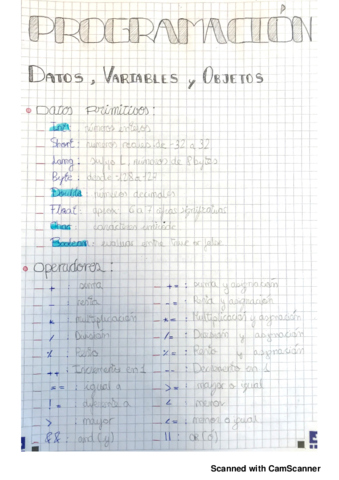 PROGRAMACIÓN
DATOS, VARIABLES y OBJETOS
Datos primitivos:
_ Int: números enteros
_ Short: números reales de -32 a 32
_ Long: Sufijo L, números de 8 bytes
_ Byte: desde -128 a 127
_ Double: números decimales
_ Float: aprox 6 a 7 cifras significativas
_ Char: contiene
_ Boolean: entre True o false
Operadores:
_ + : suma
_ += : suma y asignación
_ - : resta
_ -= : Resta y asignación
_ * : multiplicación
_ *= : Multiplicación y asignación
_ / : División
_ /= : División y asignación
_ % : Resto
_ %= : Resto y asignación
_ ++ : Incremento en 1
_ -- : Decremento en 1
_ == : igual a
_ >= : mayor o igual
_ != : diferente a
_ < : menor
_ > : mayor
_ <= : menor o igual
_ && : and (y)
_ || : OR (ó)
Scanned with CamScanner